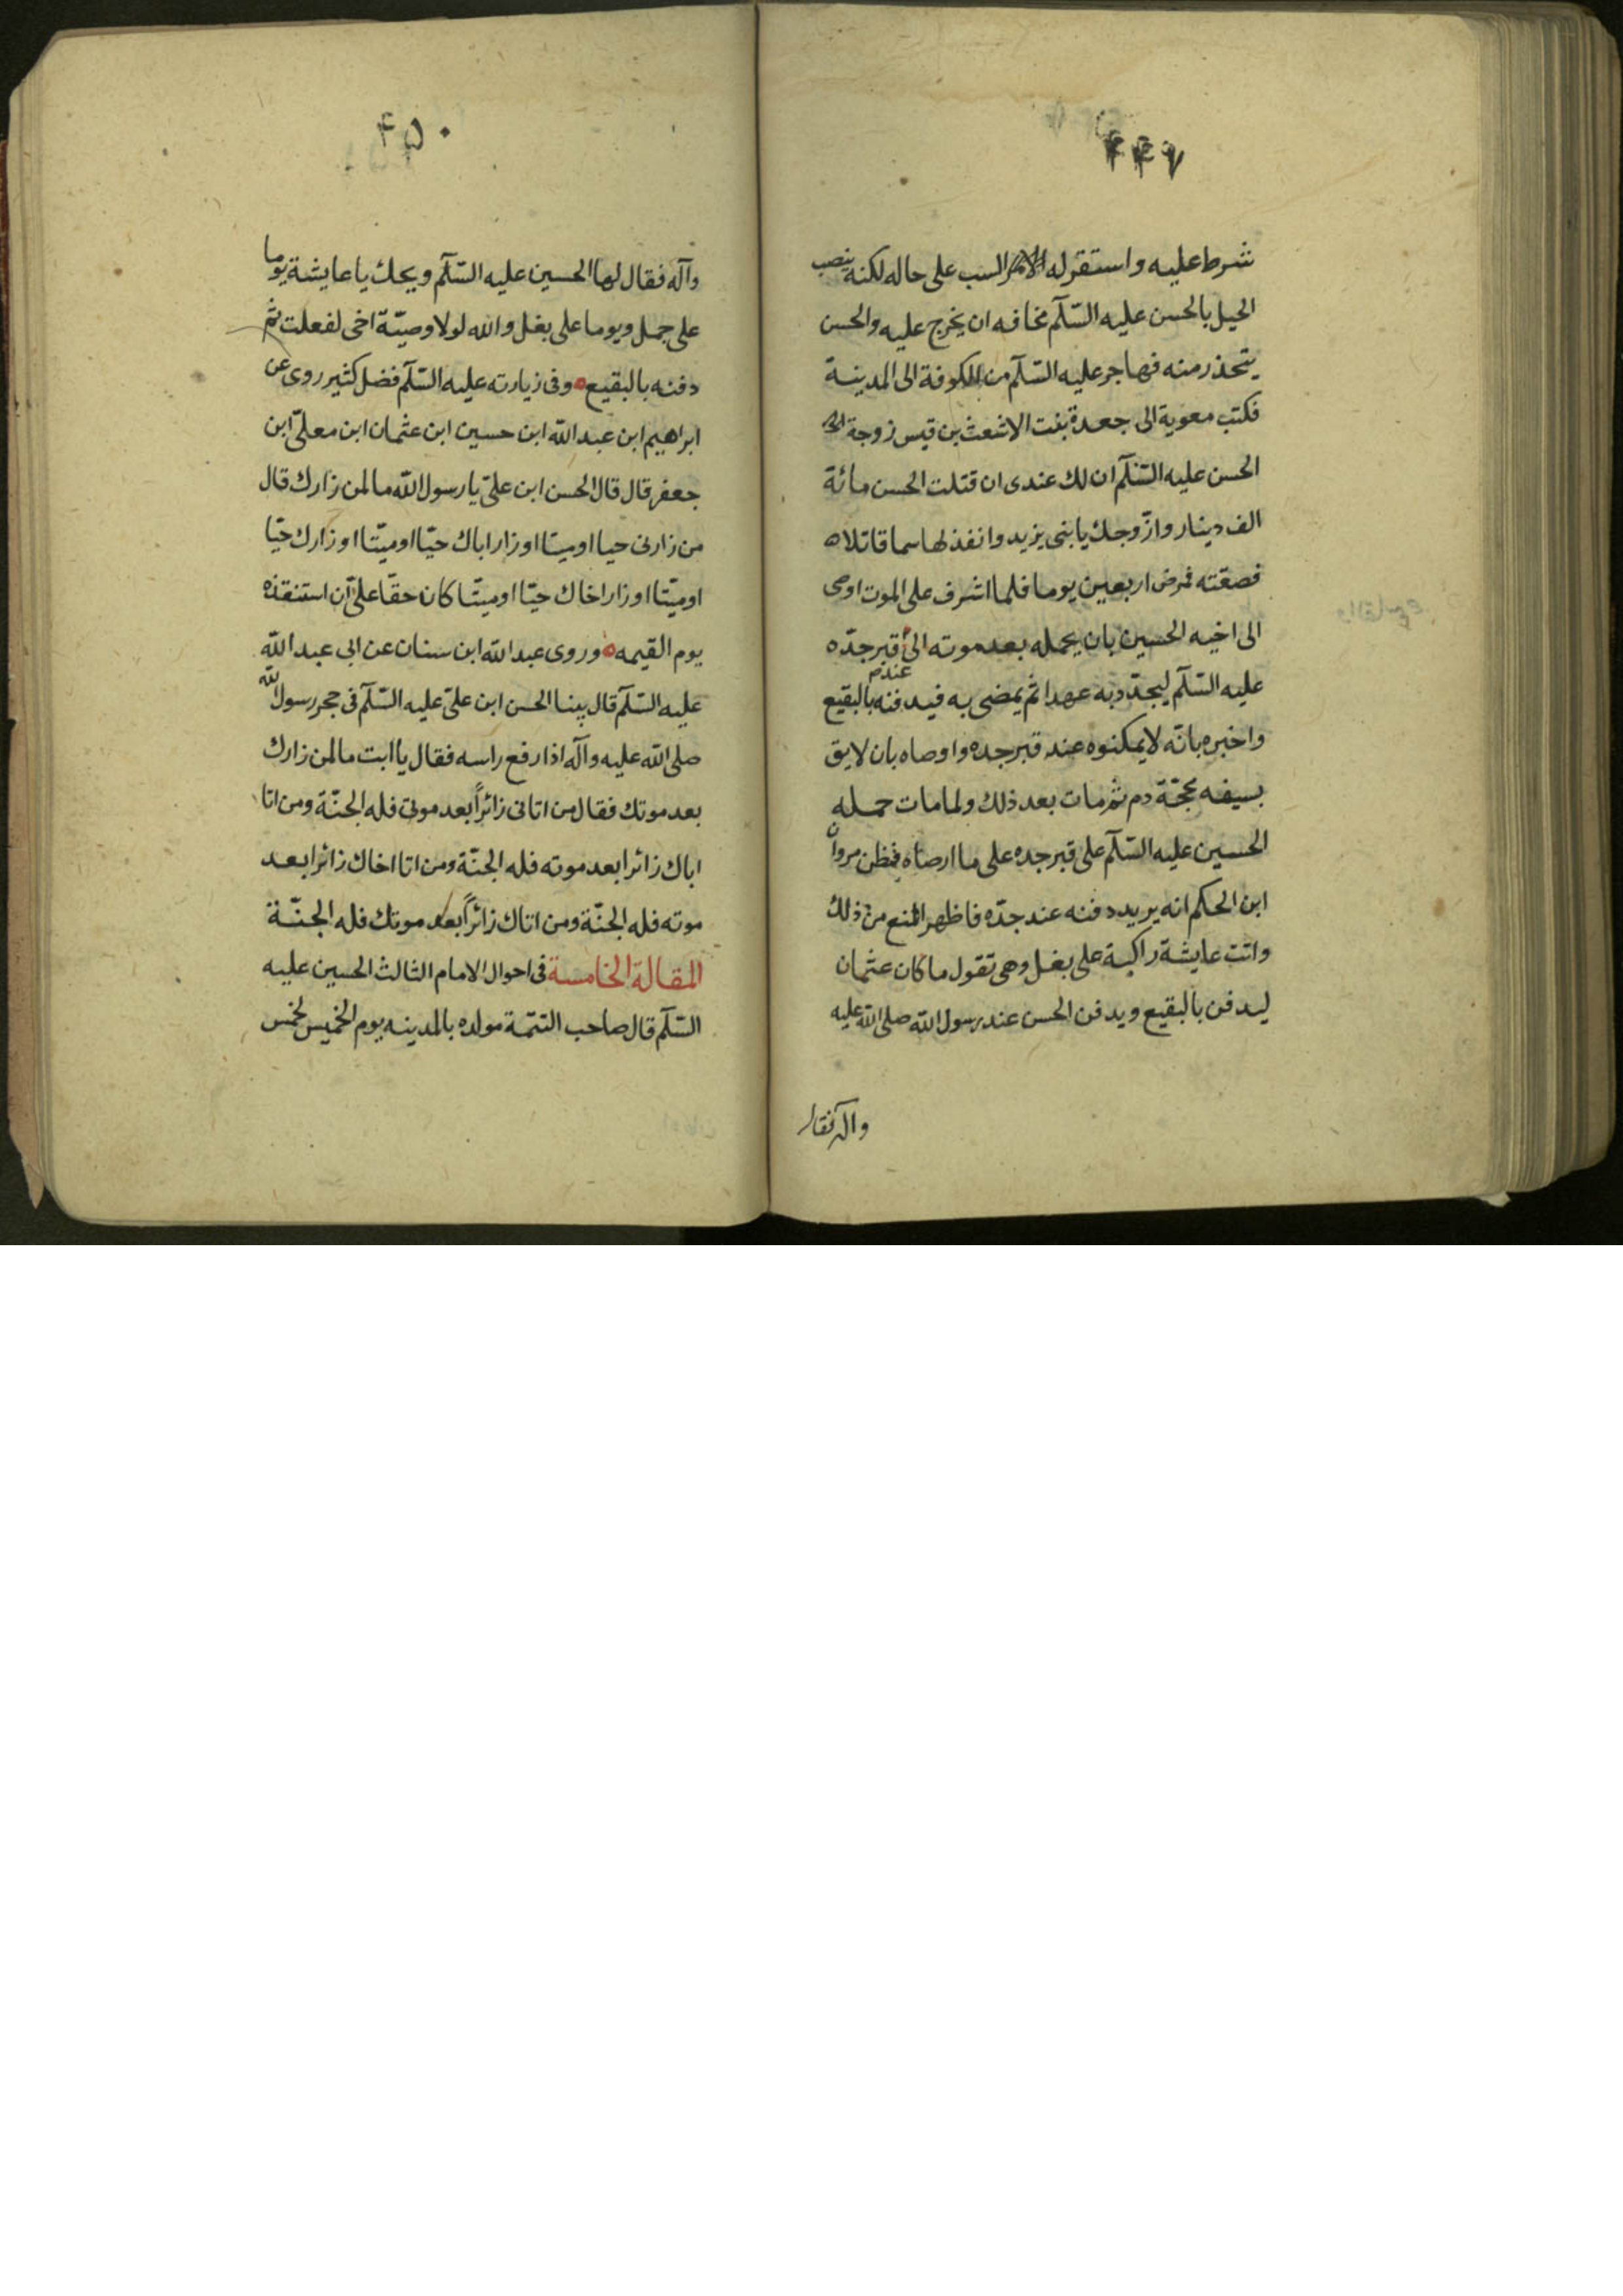 ۴۴۹
شرط عليه واستقر له الامر السب على حاله لكنه ينصب
الحيل بالحسن عليه السّلم مخافه ان يخرج عليه والحسن
يتحذر منه فهاجر عليه السّلم من الكوفة الى المدينة
فكتب معوية الى جعدة بنت الاشعث بن قيس زوجة
الحسن عليه السّلم ان لك عندى ان قتلت الحسن مائة
الف دينار وازّوجك يابنى يزيد وانفذ لها سما قاتلاه
فصقته فمرض اربعين يوما فلما اشرف على الموت اوصى
الى اخيه الحسين بان يحمله بعد موته الى قبر جدّه
عليه السّلم ليجدّد به عهدا ثم يمضى به فيدفنه بالبقيع
واخبره بانّه لا يمكنوه عند قبر جده واوصاه بان لا يق
بسيفه محجّة دم ثم مات بعد ذلك ولما مات حمله
الحسين عليه السّلم على قبر جده على ما ارصاه فظن مروان
ابن الحكم انه يريد دفنه عند جدّه فاظهر المنع من ذلك
واتت عايشة راكبة على بغل وهى تقول ما كان عثمان
ليدفن بالبقيع ويدفن الحسن عند رسول الله صلى الله عليه
واله فقال
۴۵۰
وآله فقال لها الحسين عليه السّلم ويحك يا عايشة يوما
على جمل ويوما على بغل والله لولا وصيّة اخى لفعلت ثم
دفنه بالبقيع ه وفى زيارته عليه السّلم فضل كثير روى عن
ابراهيم ابن عبد الله ابن حسين ابن عثمان ابن معلّى ابن
جعفر قال قال الحسن ابن علىّ يا رسول الله ما لمن زارك قال
من زارنى حيا او ميتا او زار اباك حيّا او ميّتا او زارك حيّا
او ميّتا او زار اخاك حيّا او ميتّا كان حقّا علىّ ان استنقذه
يوم القيمه ه وروى عبد الله ابن سنان عن ابى عبد الله
عليه السّلم قال بينا الحسن ابن علىّ عليه السّلم فى حجر رسول الله
صلى الله عليه وآله اذا رفع راسه فقال يا ابت ما لمن زارك
بعد موتك فقال من اتانى زائراً بعد موتى فله الجنّة ومن اتا
اباك زائرا بعد موته فله الجنّة ومن اتا اخاك زائرا بعد
موته فله الجنّة ومن اتاك زائراً بعد موتك فله الجنّة
المقالة الخامسة فى احوال الامام الثالث الحسين عليه
السّلم قال صاحب التتمّة مولده بالمدينه يوم الخميس لخمس